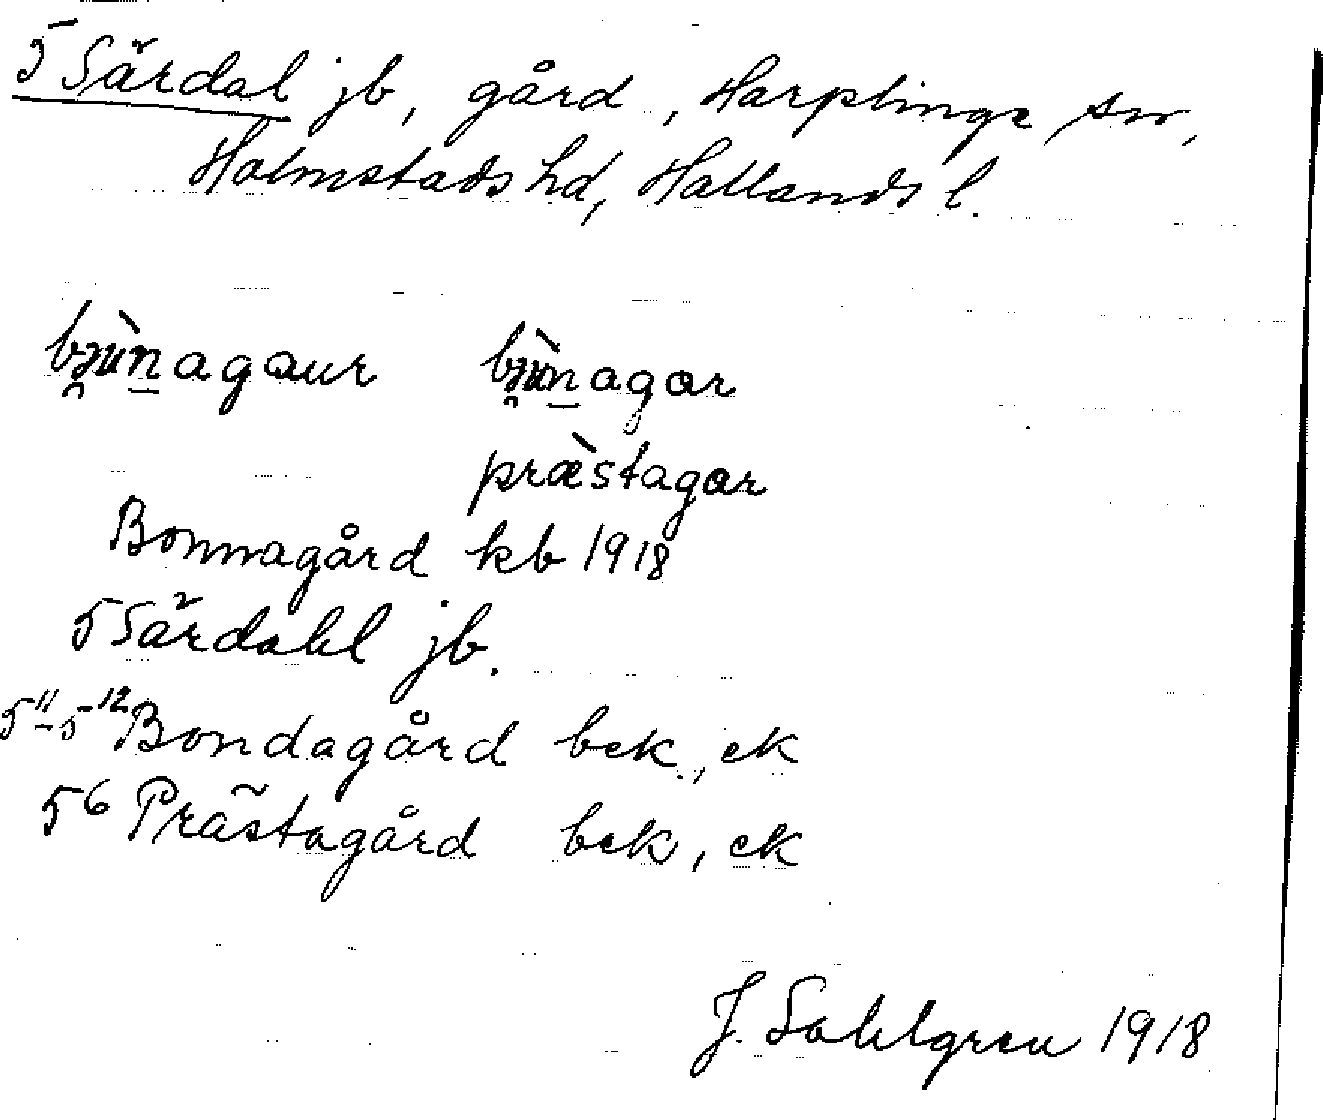 5 Särdal jb, gård, Harplinge sn,
Halmstads hd, Hallands l.
præ̀stagar
Bonnagård kb 1918
5 Särdahl jb.
5¹¹-5¹² Bondagård bek, ek
5⁶ Prästagård bek, ek
J. Sahlgren 1918